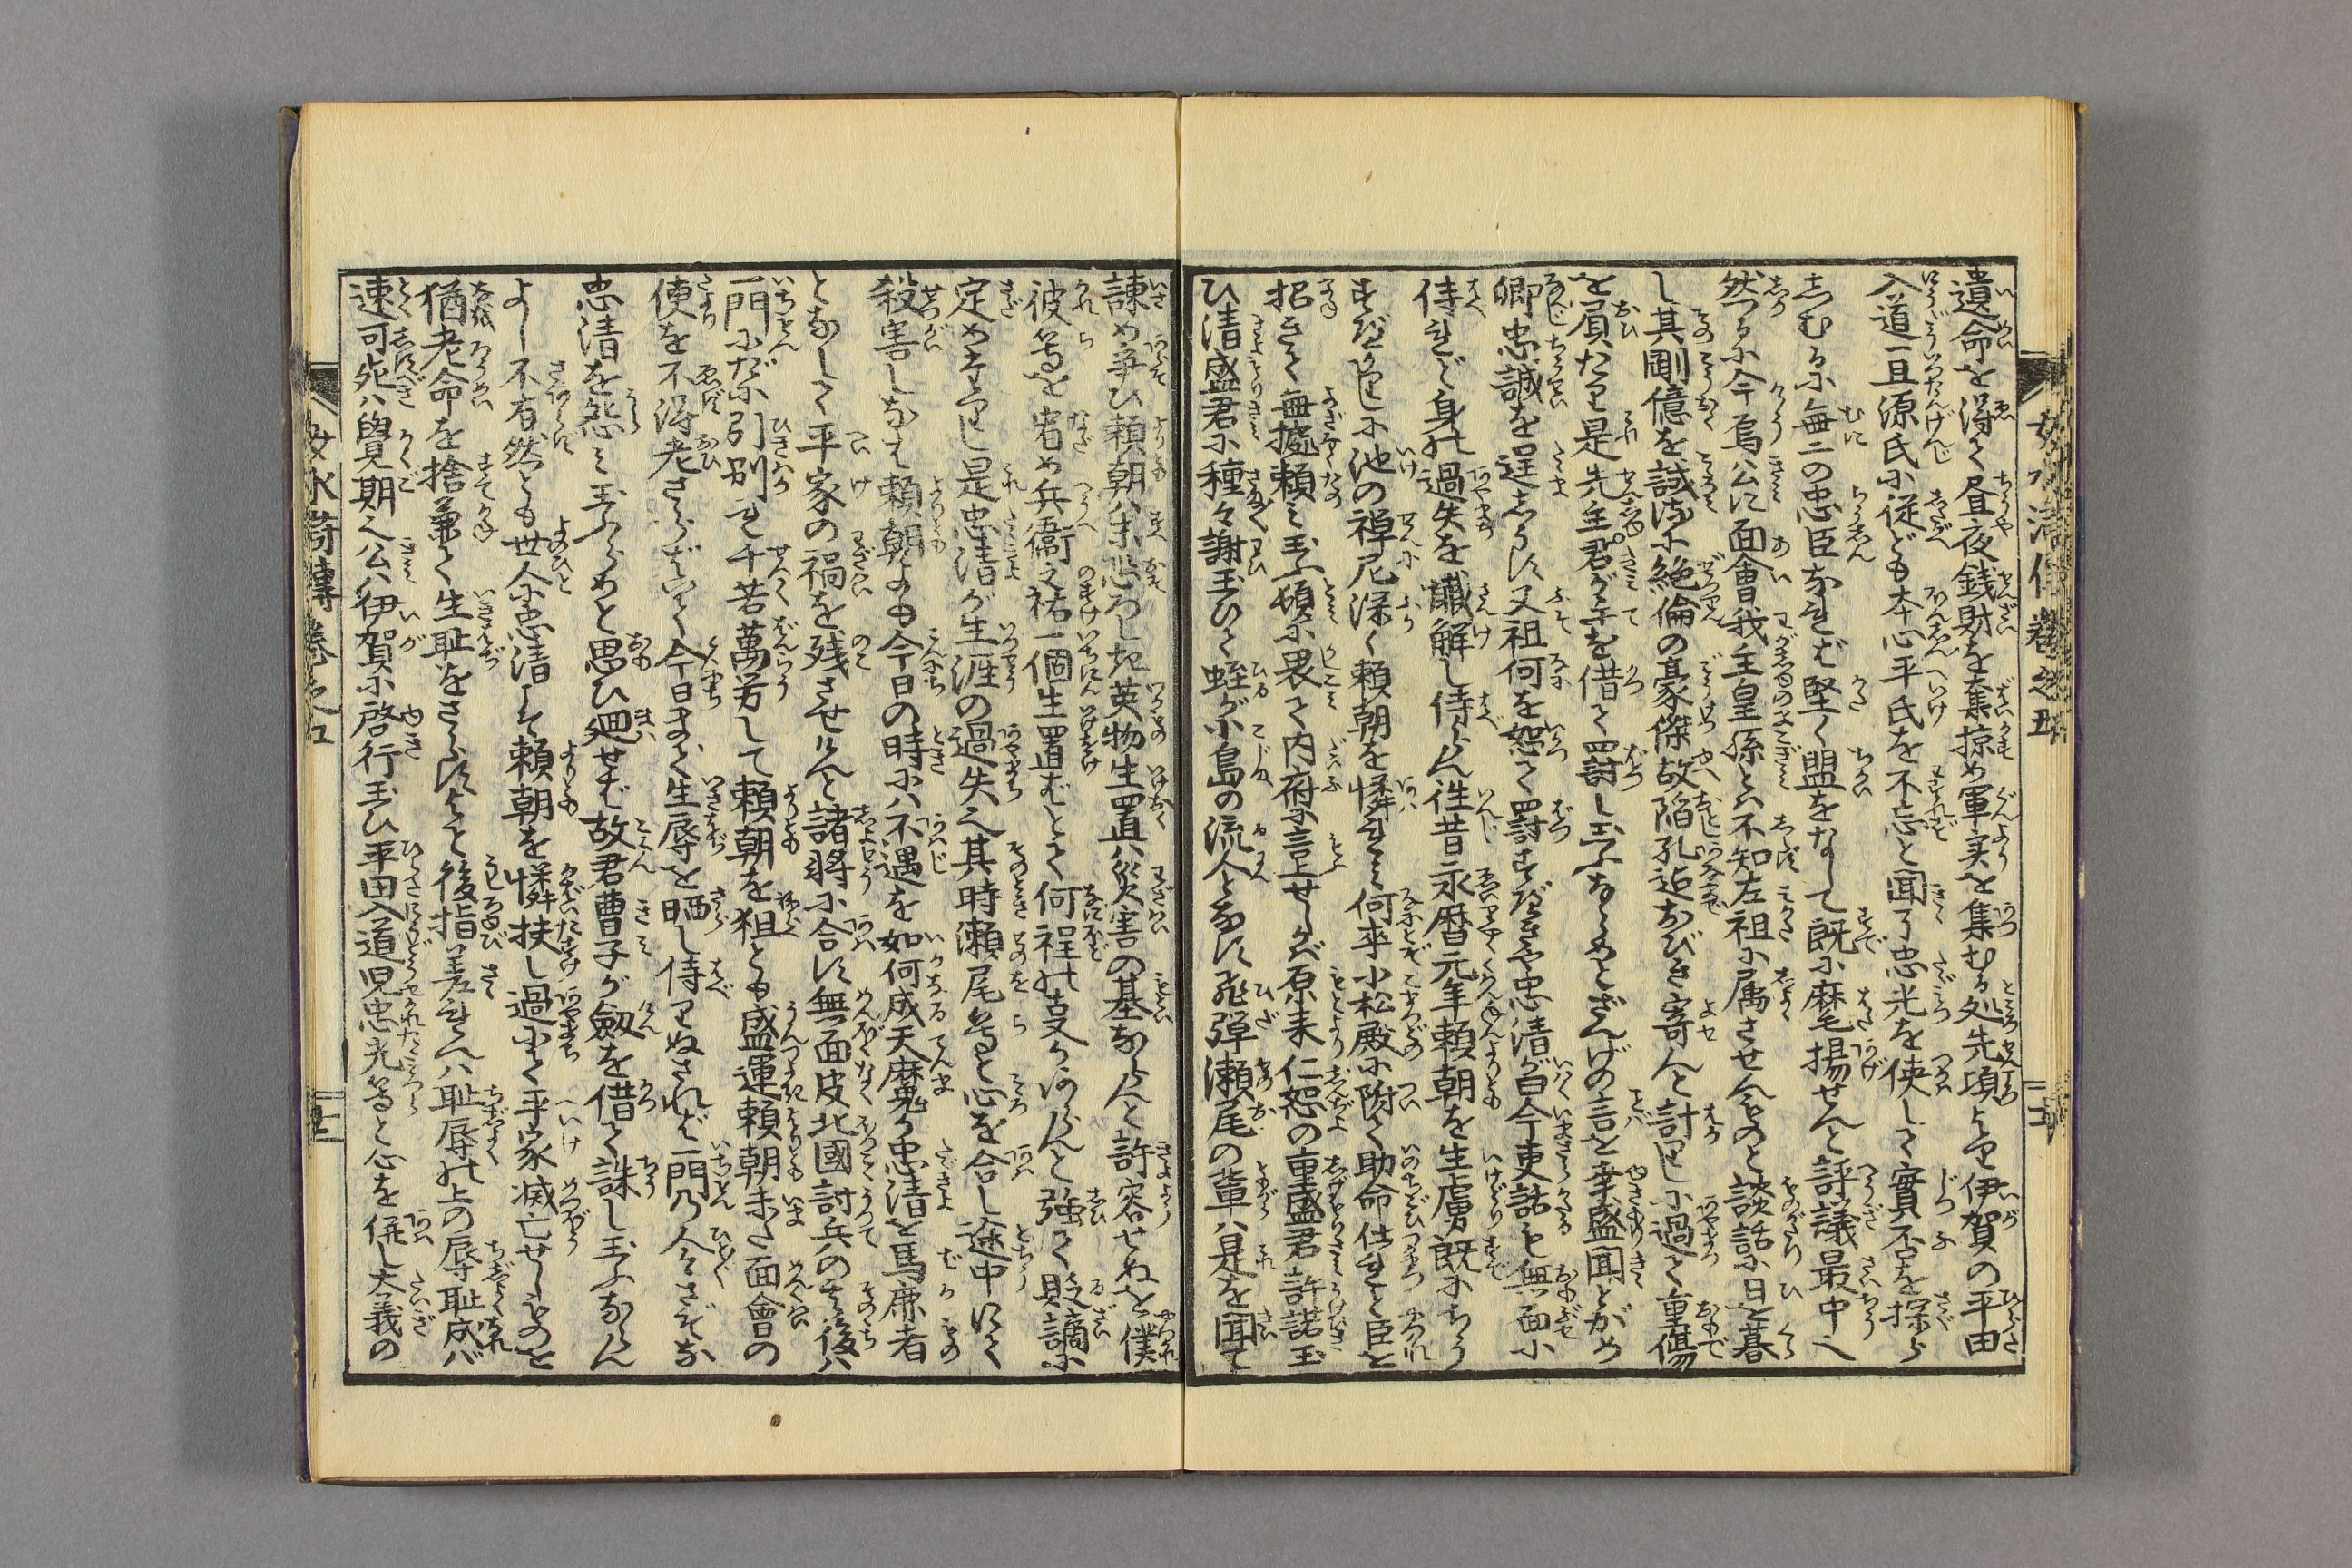 遺命を得て昼夜銭財を奪掠め軍実を集むる処先頃より伊賀の平田
入道一旦源氏に従ども本心平氏を不忘と聞了忠光を使して實不を探ら
しむるに無二の忠臣なれば堅く盟をなして既に麾揚せんと評議最中へ
然るに今烏公に面會我主皇孫とは不知左祖に属させんものと談話に日を暮
し其剛億を試るに絶倫の豪傑故陥孔迄おびき寄んと計りしに過て重傷
を負たり是先主君が手を借て罰し玉ふならめとざんげの言を幸盛聞とがめ
卿忠誠を逞しうす又祖何を恕て罰すべきや忠清が曰今更話も無面に
侍れど身の過失を懺解し侍らん往昔永暦元年頼朝を生虜既にちう
すべかりしに池の禅尼深く頼朝を憐れみ何卒小松殿に附て助命仕れと臣を
招きて無據頼み玉ふ頓に畏て内府に言上せしかば原来仁恕の重盛君許諾玉
ひ清盛君に種々謝玉ひて蛭が小島の流人となす飛弾瀬尾の輩は是を聞て
諫め争ひ頼朝は末恐ろしき英物生置ば災害の基ならんと許容せぬを僕
彼等を宥め兵衞之祐一個生置むとて何程の支かあらんと強て貶謫に
定め玉ふべし是忠清が生涯の過失也其時瀬尾等と心を合し途中にて
殺害しなば頼朝よも今日の時には不遇を如何成天魔か忠清を馬鹿者
となして平家の禍を残させけんと諸將に合す無面皮北國討兵の其後は
一門にだに引別れ千苦萬労して頼朝を狙とも盛運頼朝未た面會の
便を不得老さらばいて今日まで生辱を晒し侍りぬされば一門乃人々さぞな
忠清を怨み玉ふらめと思ひ廻せば故君曹子が劔を借て誅し玉ふならん
よし不有然とも世人に忠清こそ頼朝を憐扶し過にて平家滅亡せしものを
猶老命を捨兼て生恥をさらすよと後指差れんは恥辱の上の辱恥成バ
速可死は覺期之公は伊賀に啓行玉ひ平田入道児忠光等と心を併し大義の